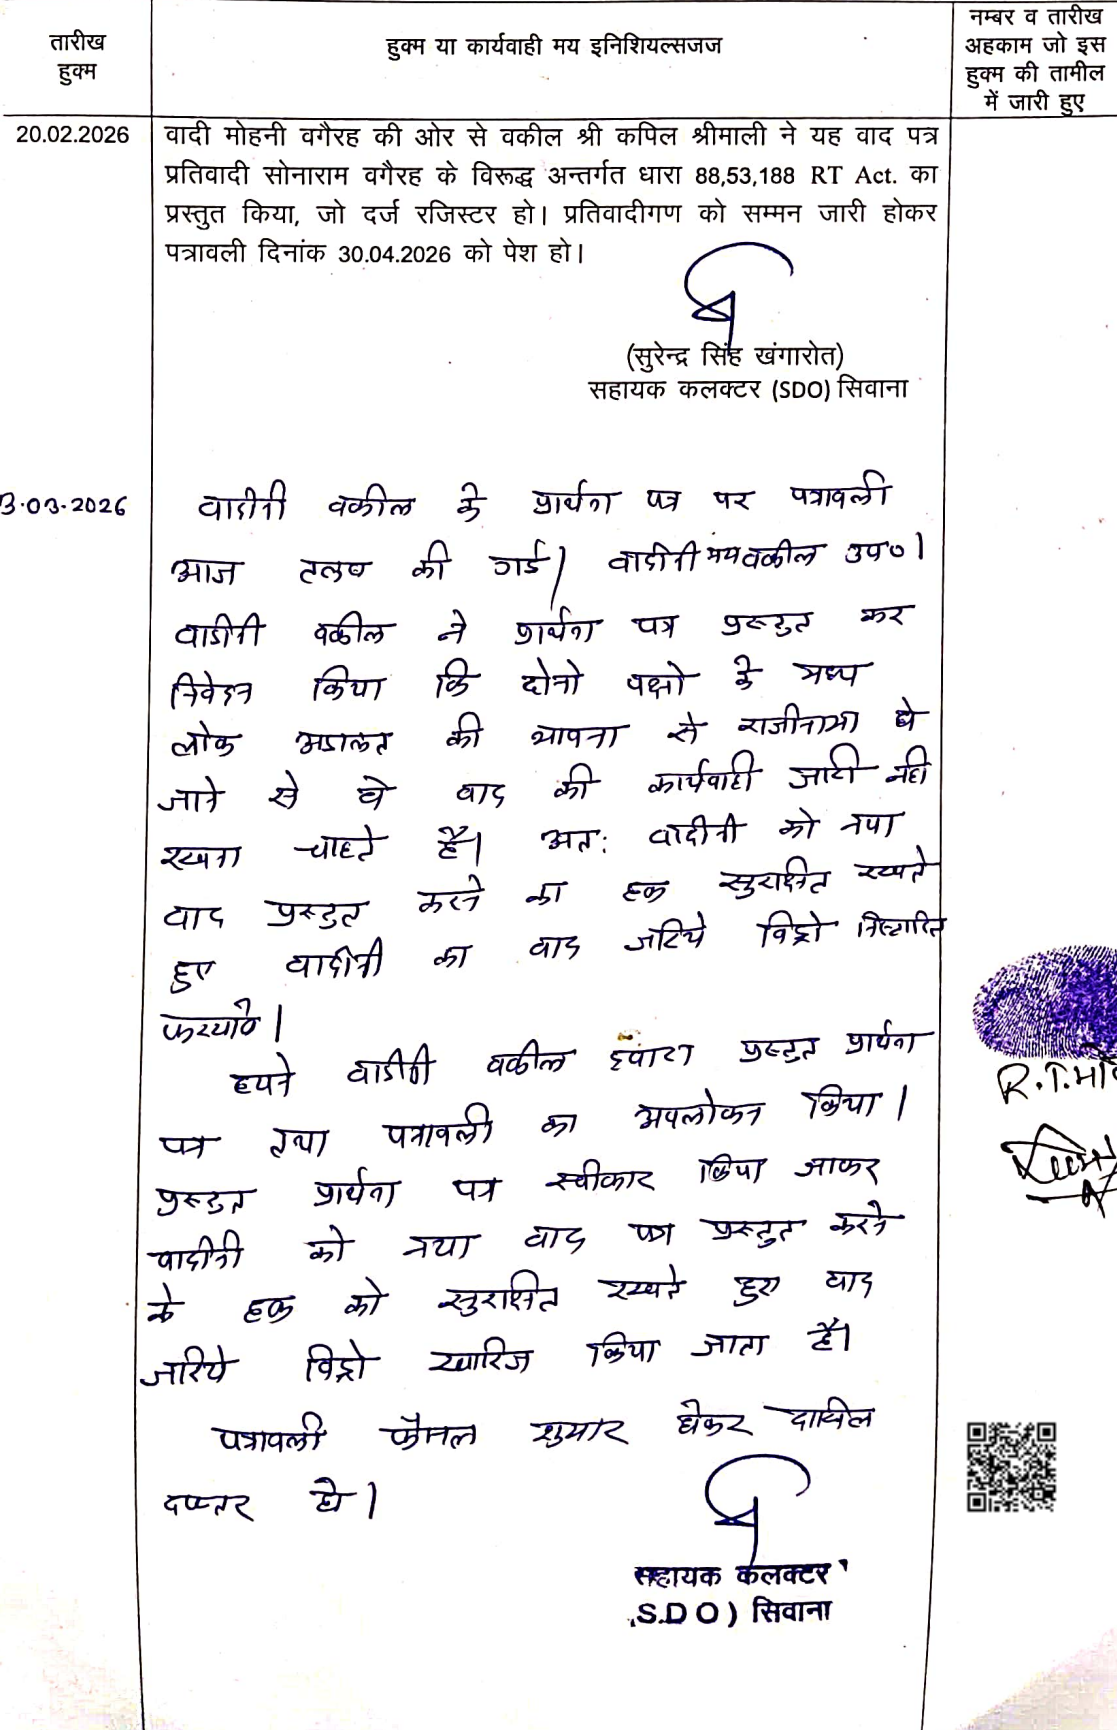 तारीख
हुक्म
हुक्म या कार्यवाही मय इनिशियल्सजज
नम्बर व तारीख
अहकाम जो इस
हुक्म की तामील
में जारी हुए
20.02.2026
वादी मोहनी वगैरह की ओर से वकील श्री कपिल श्रीमाली ने यह वाद पत्र
प्रतिवादी सोनाराम वगैरह के विरूद्ध अन्तर्गत धारा 88,53,188 RT Act. का
प्रस्तुत किया, जो दर्ज रजिस्टर हो। प्रतिवादीगण को सम्मन जारी होकर
पत्रावली दिनांक 30.04.2026 को पेश हो।
(सुरेन्द्र सिंह खंगारोत)
सहायक कलक्टर (SDO) सिवाना
3.03.2026
वादीनी वकील के प्रार्थना पत्र पर पत्रावली
आज तलब की गई। वादीनी मय वकील उप०।
वादीनी वकील ने प्रार्थना पत्र प्रस्तुत कर
निवेदन किया कि दोनो पक्षो के मध्य
लोक अदालत की भावना से राजीनामा हो
जाने से वे वाद की कार्यवाही जारी नही
रखना चाहते है। अत: वादीनी को नया
वाद प्रस्तुत करने का हक सुरक्षित रखते
हुए वादीनी का वाद जरिये विड्रो निस्तारित
फरमावे।
हमने वादीनी वकील द्वारा प्रस्तुत प्रार्थना
पत्र तथा पत्रावली का अवलोकन किया।
प्रस्तुत प्रार्थना पत्र स्वीकार किया जाकर
वादीनी को नया वाद पत्र प्रस्तुत करने
के हक को सुरक्षित रखते हुए वाद
जरिये विड्रो खारिज किया जाता है।
पत्रावली फैसल शुमार होकर दाखिल
दफ्तर हो।
R.T.मो
सहायक कलक्टर
S.D O) सिवाना